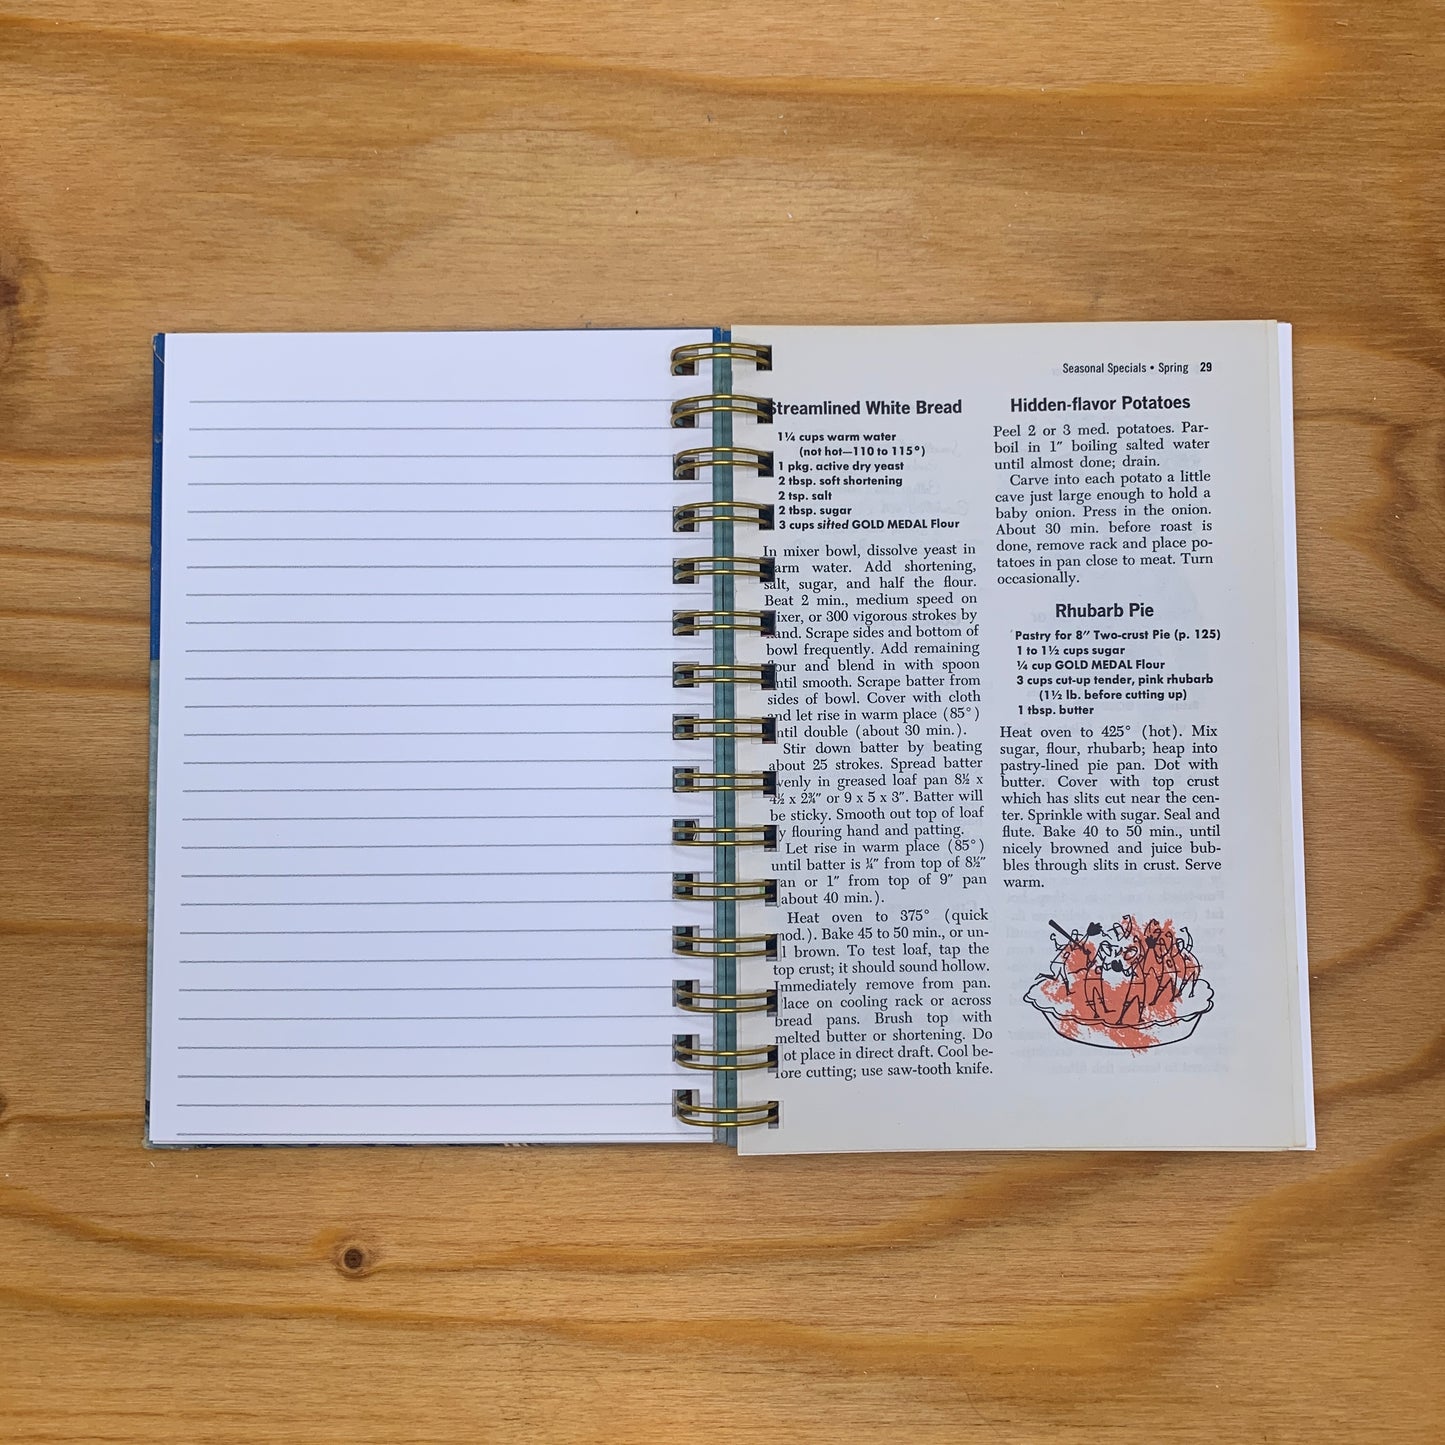 Seasonal Specials • Spring 29
Streamlined White Bread
1¼ cups warm water
(not hot—110 to 115°)
1 pkg. active dry yeast
2 tbsp. soft shortening
2 tsp. salt
2 tbsp. sugar
3 cups sifted GOLD MEDAL Flour
In mixer bowl, dissolve yeast in
warm water. Add shortening,
salt, sugar, and half the flour.
Beat 2 min., medium speed on
mixer, or 300 vigorous strokes by
hand. Scrape sides and bottom of
bowl frequently. Add remaining
flour and blend in with spoon
until smooth. Scrape batter from
sides of bowl. Cover with cloth
and let rise in warm place (85°)
until double (about 30 min.).
Stir down batter by beating
about 25 strokes. Spread batter
evenly in greased loaf pan 8½ x
4½ x 2¾" or 9 x 5 x 3". Batter will
be sticky. Smooth out top of loaf
by flouring hand and patting.
Let rise in warm place (85°)
until batter is ¼" from top of 8½"
pan or 1" from top of 9" pan
(about 40 min.).
Heat oven to 375° (quick
mod.). Bake 45 to 50 min., or un-
til brown. To test loaf, tap the
top crust; it should sound hollow.
Immediately remove from pan.
Place on cooling rack or across
bread pans. Brush top with
melted butter or shortening. Do
not place in direct draft. Cool be-
fore cutting; use saw-tooth knife.
Hidden-flavor Potatoes
Peel 2 or 3 med. potatoes. Par-
boil in 1" boiling salted water
until almost done; drain.
Carve into each potato a little
cave just large enough to hold a
baby onion. Press in the onion.
About 30 min. before roast is
done, remove rack and place po-
tatoes in pan close to meat. Turn
occasionally.
Rhubarb Pie
Pastry for 8" Two-crust Pie (p. 125)
1 to 1½ cups sugar
¼ cup GOLD MEDAL Flour
3 cups cut-up tender, pink rhubarb
(1½ lb. before cutting up)
1 tbsp. butter
Heat oven to 425° (hot). Mix
sugar, flour, rhubarb; heap into
pastry-lined pie pan. Dot with
butter. Cover with top crust
which has slits cut near the cen-
ter. Sprinkle with sugar. Seal and
flute. Bake 40 to 50 min., until
nicely browned and juice bub-
bles through slits in crust. Serve
warm.